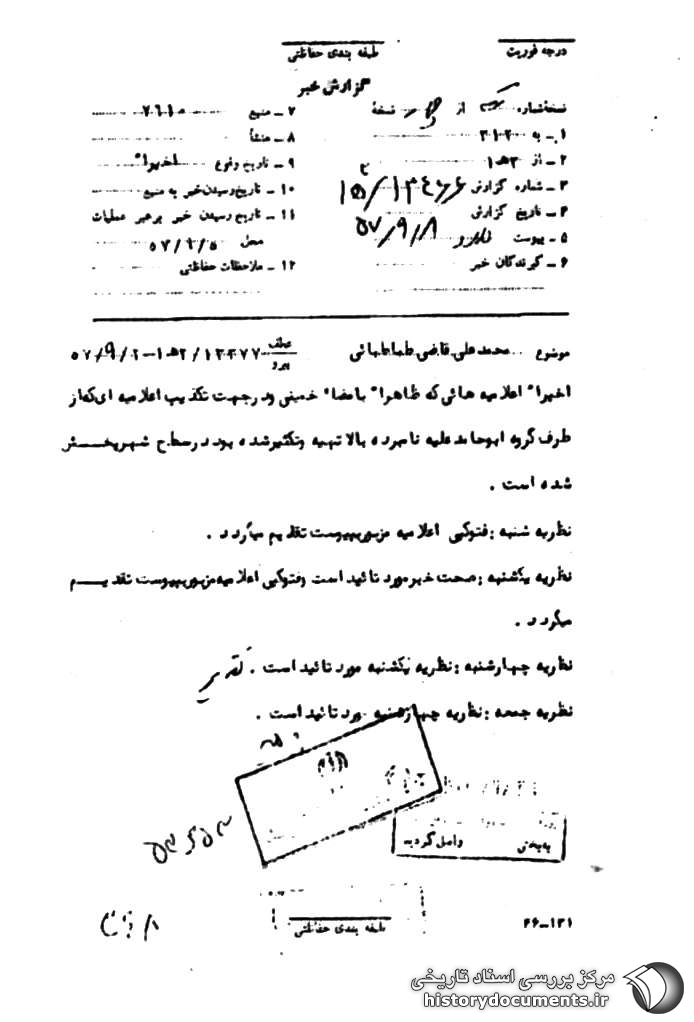 درجه فوریت
طبقه بندی حفاظتی
گزارش خبر
نسخه‌شماره یک از نسخهٔ
۱ـ به ۳۱۲
۲ـ از ۳هـ۱
۳ـ شماره گزارش
۴ـ تاریخ گزارش ۵۷/۹/۸
۵ـ پیوست دارد
۶ـ گیرندگان خبر
۷ـ منبع ۷۶۱۰
۸ـ منشأ
۹ـ تاریخ وقوع اخیراً
۱۰ـ تاریخ رسیدن خبر به منبع
۱۱ـ تاریخ رسیدن خبر برهبر عملیات
محل
۱۲ـ ملاحظات حفاظتی
موضوع محمدعلی قاضی طباطبائی
عطف
پیرو
اخیراً اعلامیه هائی که ظاهراً بامضاء خمینی ودرجهت تکذیب اعلامیه ای‌که‌از
طرف گروه ابوحامد علیه نامبرده بالا تهیه وتکثیرشده بود درسطح شهرپخــش
شده است .
نظریه شنبه : فتوکپی اعلامیه مزبوربپیوست تقدیم میگردد .
نظریه یکشنبه : صحت خبرمورد تائید است وفتوکپی اعلامیه‌مزبوربپیوست تقدیــم
میگردد .
نظریه چهارشنبه : نظریه یکشنبه مورد تائید است .
نظریه جمعه : نظریه چهارشنبه مورد تائید است .
به‌بخش واصل گردید
طبقه بندی حفاظتی
۲۶-۱۳۱
مرکز بررسی اسناد تاریخی
historydocuments.ir